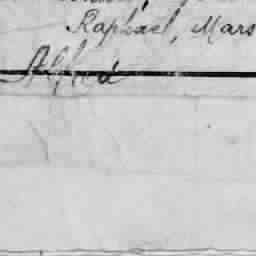 Raphael, Mars
Alfred